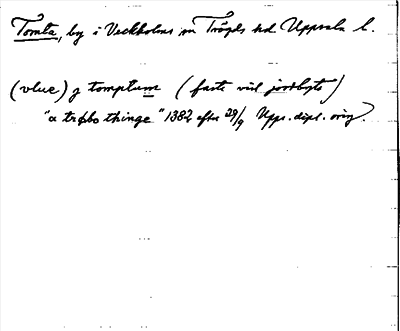 Tomta, by i Veckholms sn Trögds hd Uppsala l.
(vlue) j tomptum (faste vid jordbyte)
"a trøbo thinge" 1382 efter 29/9 Upps. dipl. orig.